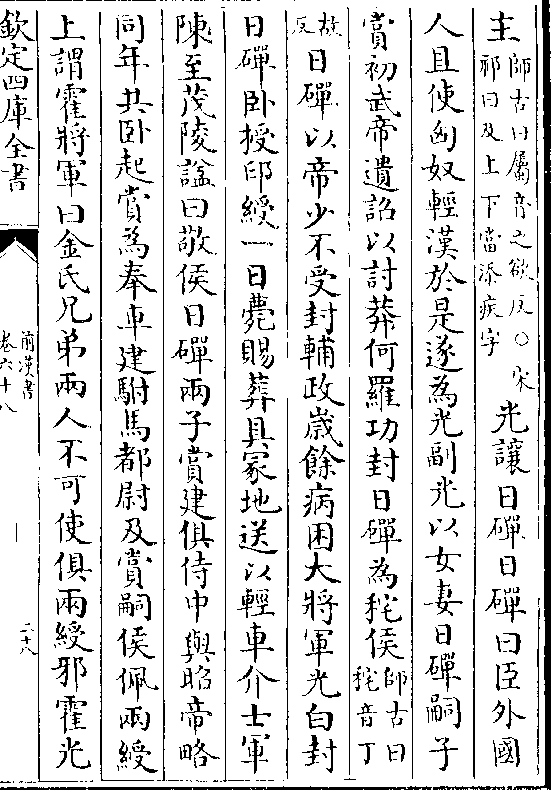 主師古曰屬音之欲反○宋祁曰及上下當添疾字光讓日磾日磾曰臣外國
人且使匈奴輕漢於是遂為光副光以女妻日磾嗣子
賞初武帝遺詔以討莽何羅功封日磾為秺侯師古曰秺音丁
故反日磾以帝少不受封輔政歲餘病困大將軍光白封
日磾卧授印綬一日薨賜葬具冢地送以輕車介士軍
陳至茂陵諡曰敬侯日磾兩子賞建俱侍中與昭帝略
同年共卧起賞為奉車建駙馬都尉及賞嗣侯佩兩綬
上謂霍將軍曰金氏兄弟兩人不可使俱兩綬邪霍光
欽定四庫全書
前漢書
卷六十八
二十八